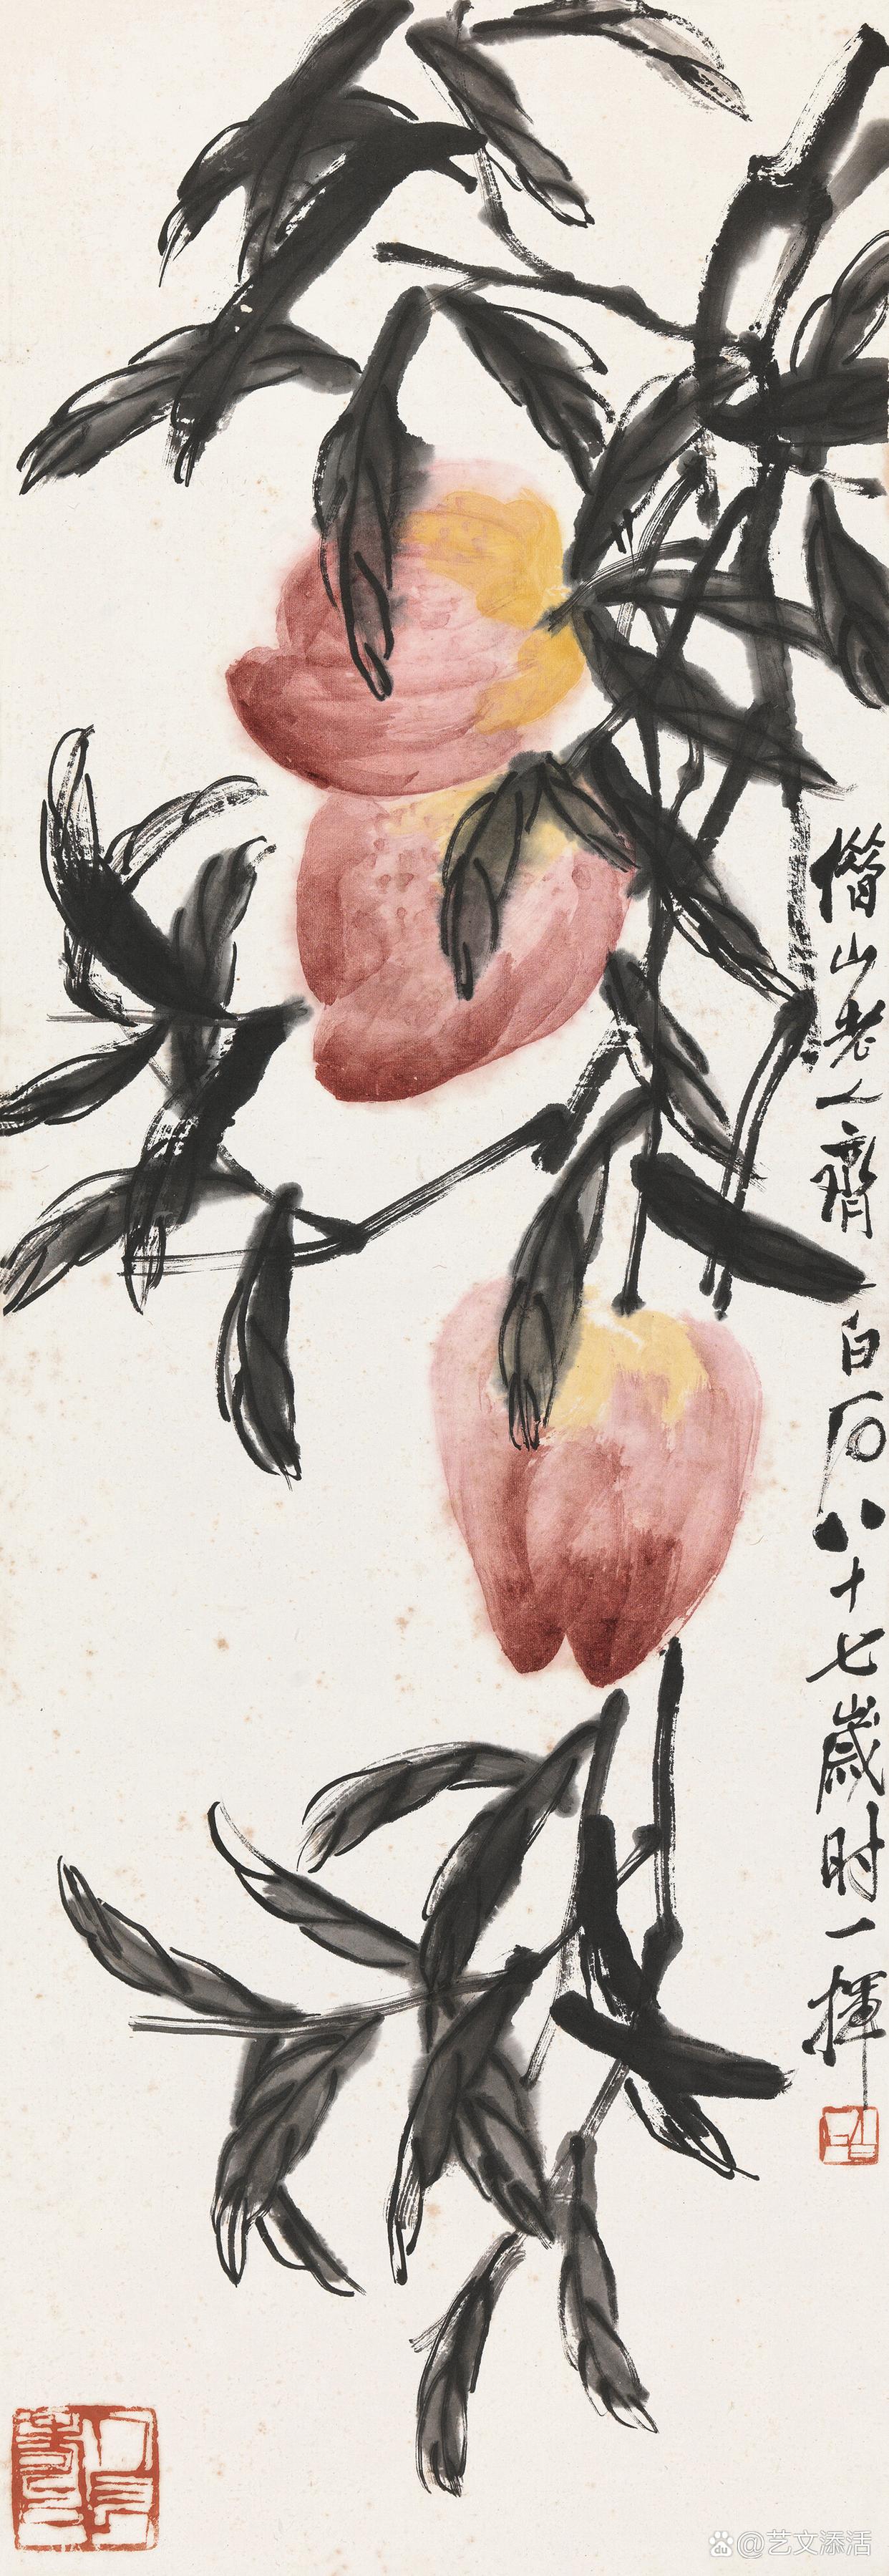 借山老人齊白石八十七歲時一揮
@艺文添活